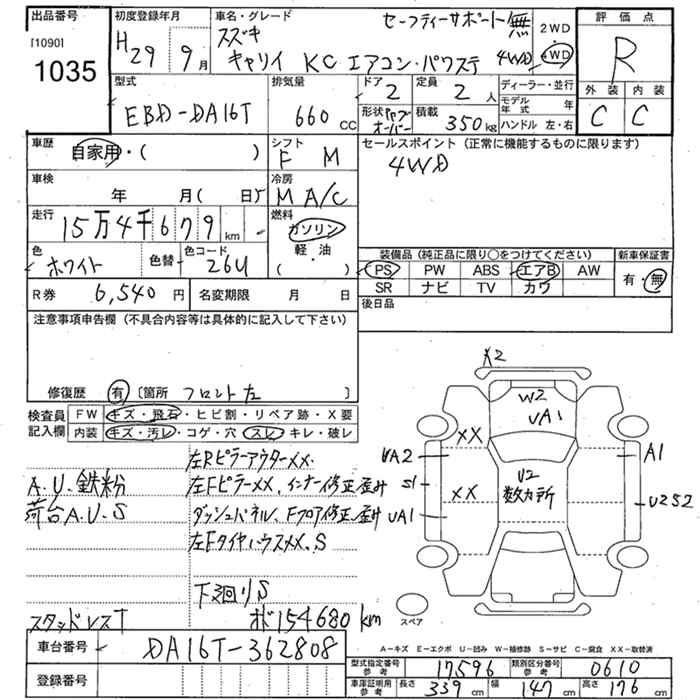 出品番号
[1090]
1035
初度登録年月
H29 9月
車名・グレード
セーフティーサポート無
スズキ
キャリイ KC エアコン・パワステ 4WD
2WD
4WD
評価点
R
外装 内装
C C
型式
EBD-DA16T
排気量
660 CC
ドア 2
定員 2 人
ディーラー・並行
モデル年式 年
形状
積載 350 kg
ハンドル 左・右
車歴
自家用・( )
シフト
F M
セールスポイント(正常に機能するものに限ります)
4WD
車検
年 月( 日)
冷房
M A/C
走行
15万4千679 km
燃料
ガソリン
軽・油
( )
色
ホワイト
色替
色コード
26U
装備品(純正品に限り○をつけてください)
新車保証書
PS PW ABS エアB AW
SR ナビ TV カワ
有・無
R券 6,540 円
名変期限 月 日
後日品
注意事項申告欄(不具合内容等は具体的に記入して下さい)
修復歴 有 [箇所 フロント左 ]
検査員記入欄
FW キズ・飛石・ヒビ割・リペア跡・X要
内装 キズ・汚レ・コゲ・穴 スレ・キレ・破レ
左RピラーアウターXX.
A.U.鉄粉
左FピラーXX、インナー修正歪み
荷台A.U.S
ダッシュパネル、Fフロア修正歪み
左FタイヤハウスXX.S
下廻りS
スタッドレスT
ボ154680km
A2
W2
UA1
XX
UA2
A1
S1
XX
U2
数カ所
U2S2
UA1
スペア
A-キズ E-エクボ U-凹み W-補修跡 S-サビ C-腐食 XX-取替済
車台番号
DA16T-362808
登録番号
型式指定番号 参考 17596
類別区分番号 参考 0610
車庫証明用 参考 長さ 339 cm 幅 147 cm 高さ 176 cm